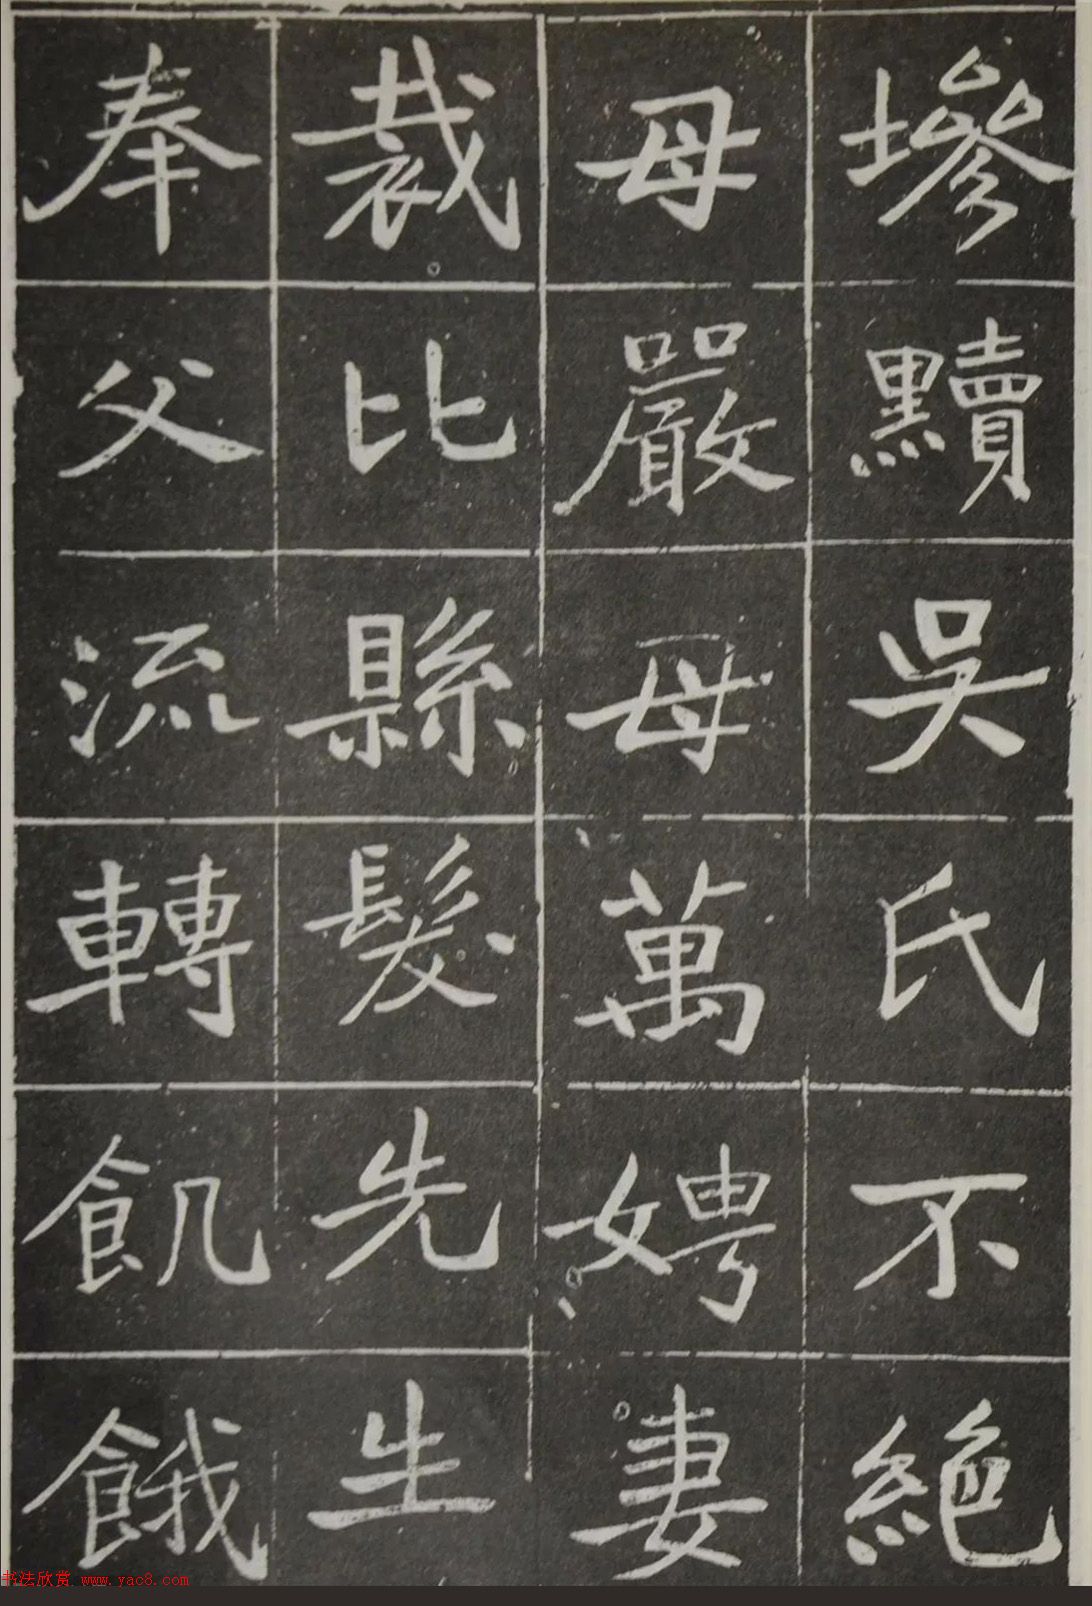 墋黷吳氏不絕
母嚴母萬娉妻
裁比縣髮先生
奉父流轉飢餓
书法欣赏 www.yac8.com